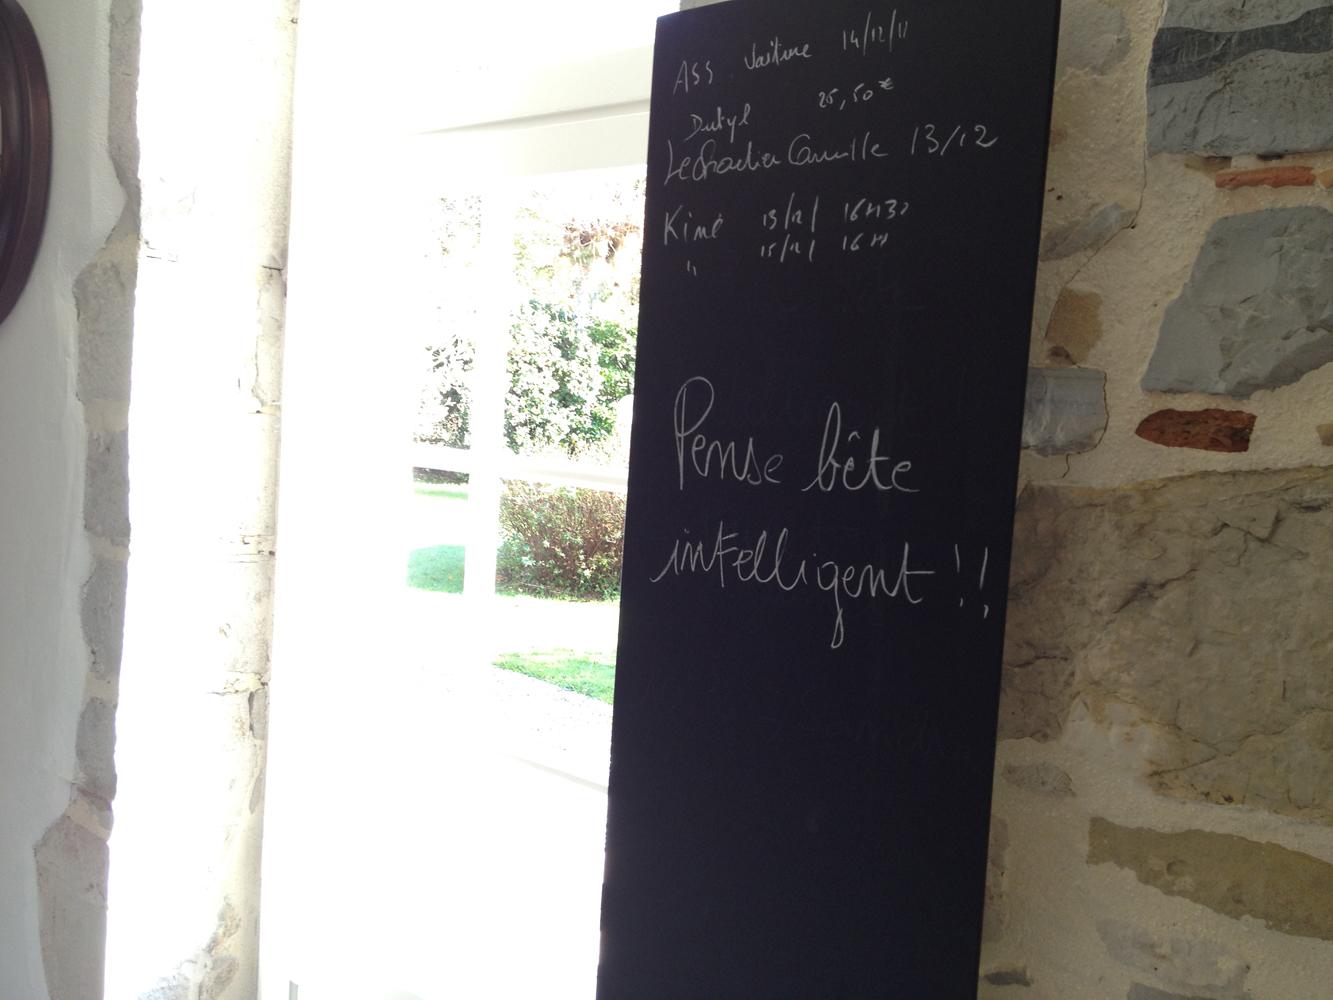 ASS Voiture 14/12/11
Dutyl 25,50€
Camille 13/12
Kiné 13/12/ 16H30
" 15/12/ 16H
Pense bête
intelligent !!